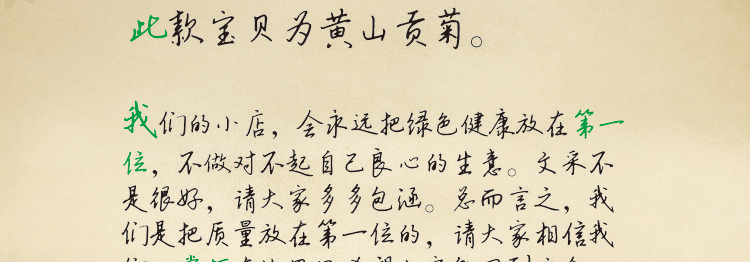 此款宝贝为黄山贡菊。
我们的小店，会永远把绿色健康放在第一
位，不做对不起自己良心的生意。文采不
是很好，请大家多多包涵。总而言之，我
们是把质量放在第一位的，请大家相信我